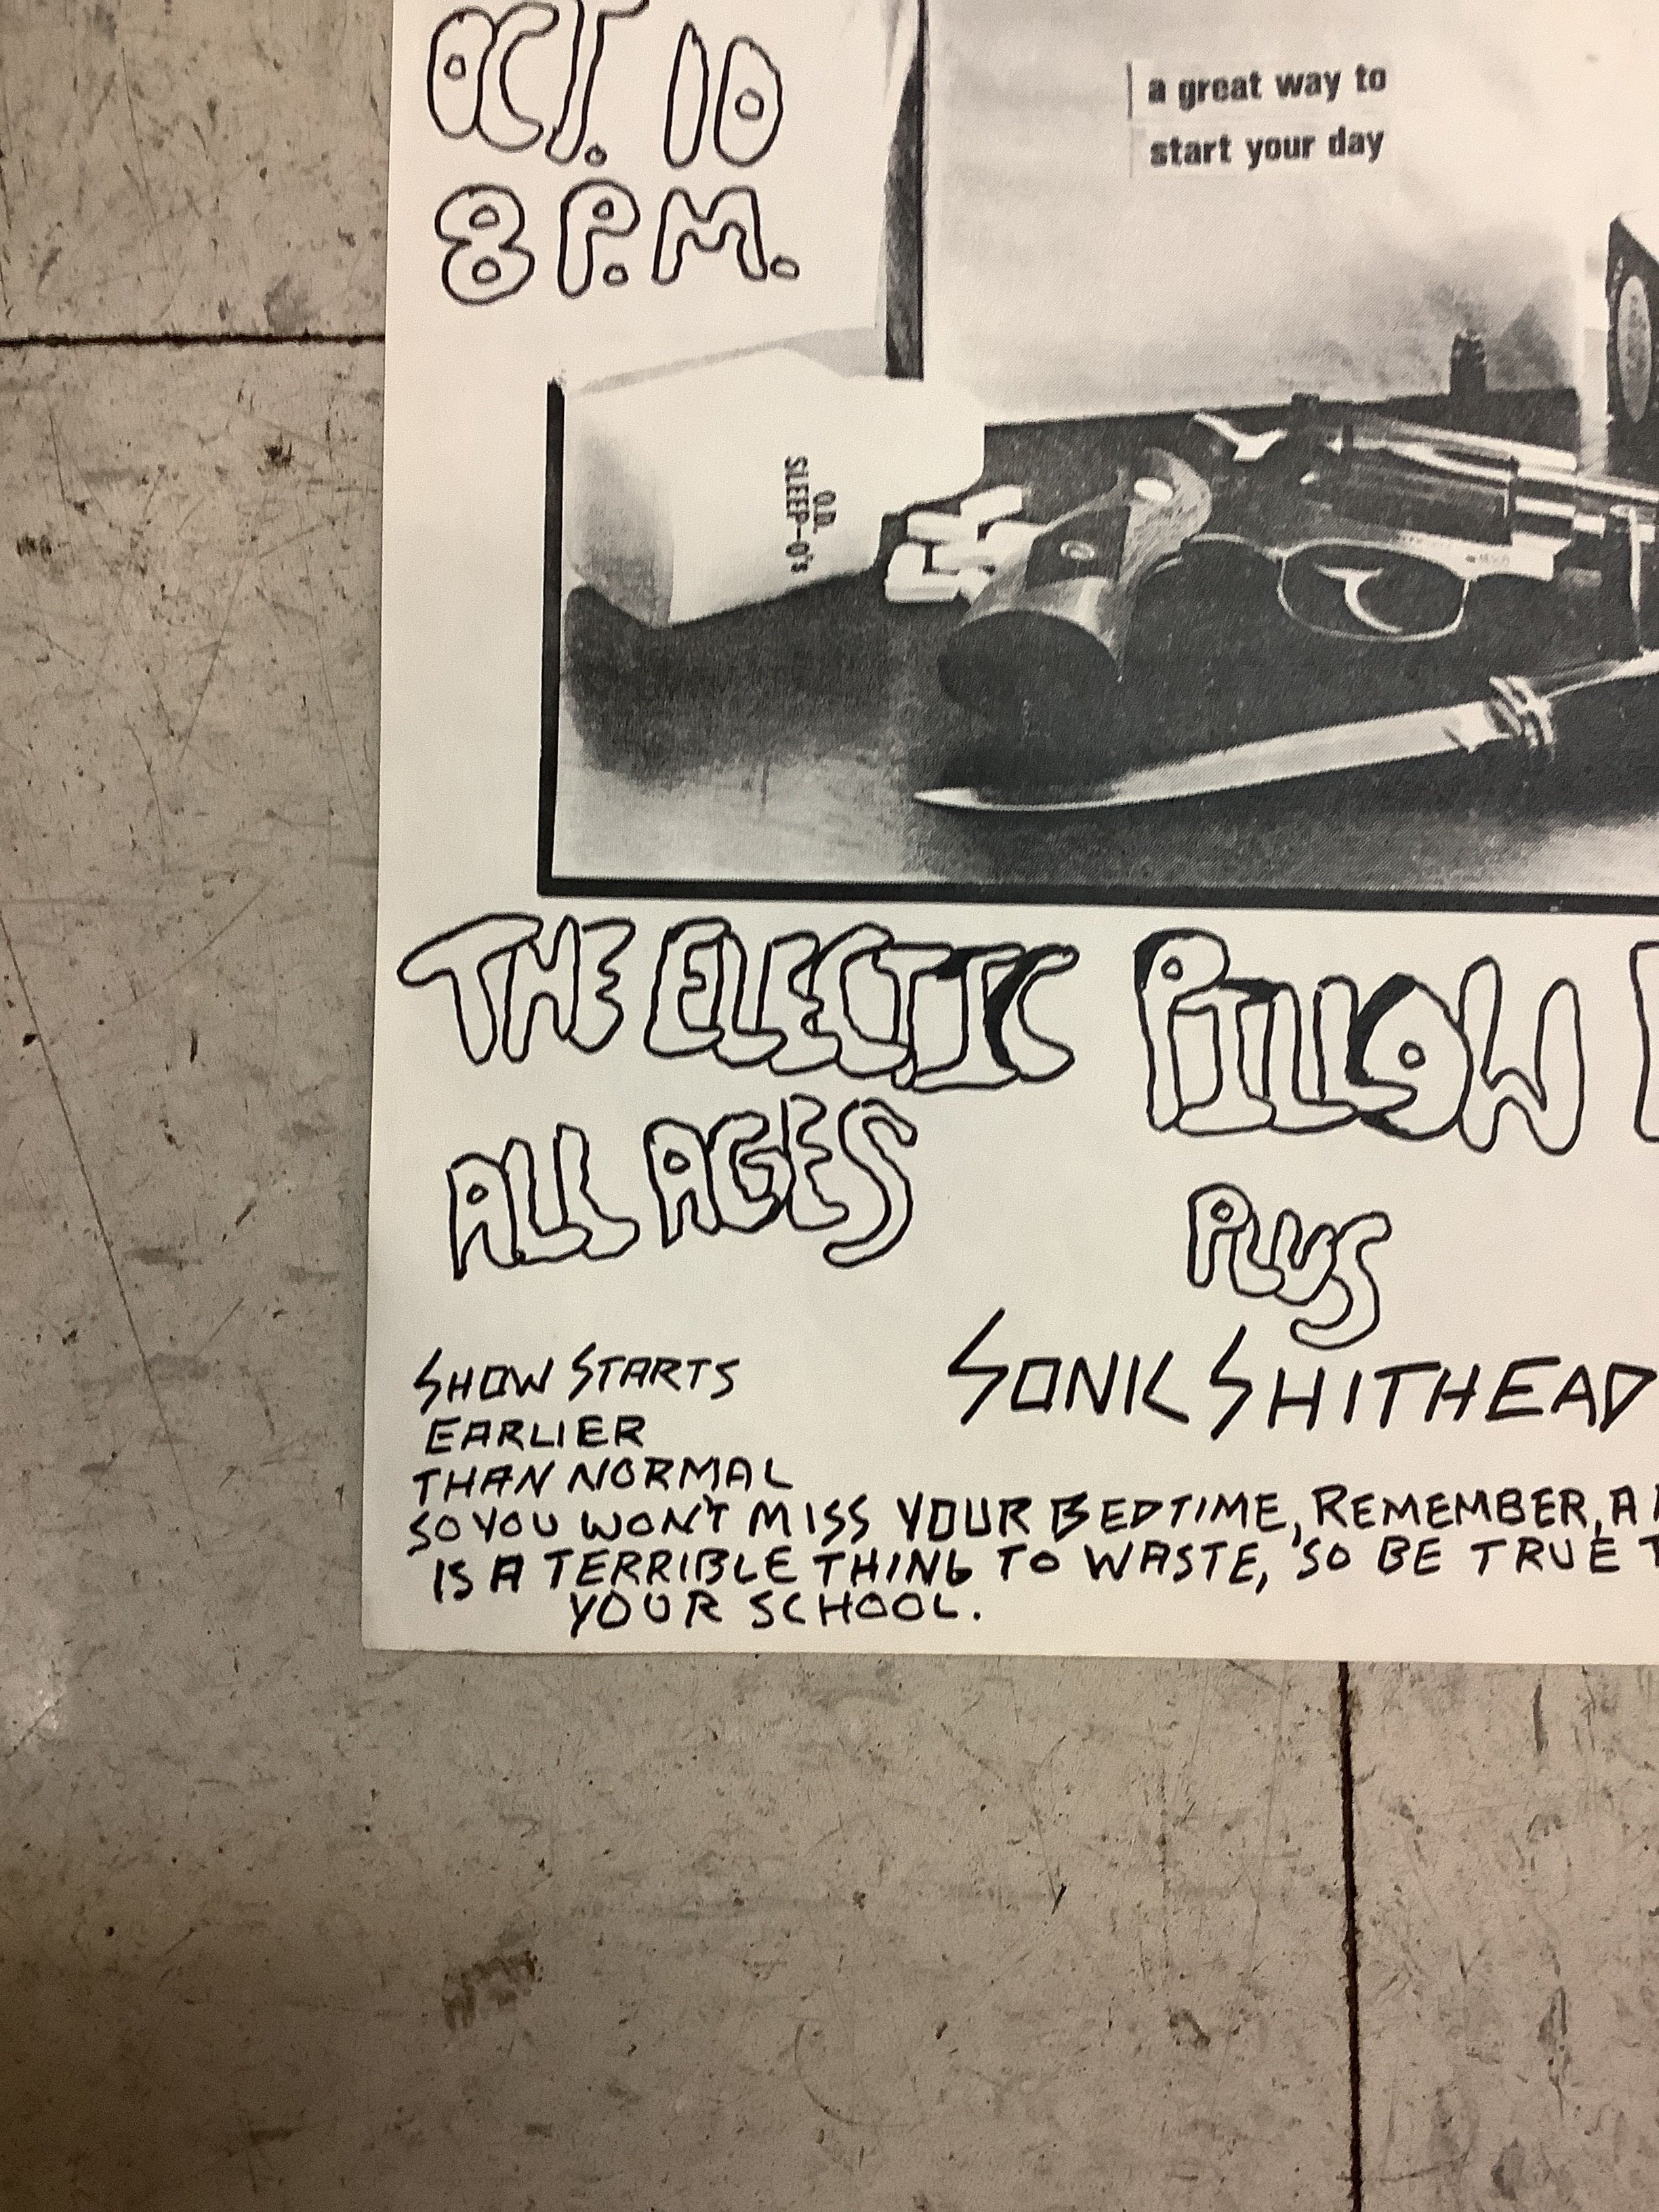 OCT. 10
8 P.M.
a great way to
start your day
O.D.
SLEEP-O's
THE ELECTIC PILLOW
ALL AGES
PLUS
SONIC SHITHEAD
SHOW STARTS
EARLIER
THAN NORMAL
SO YOU WON'T MISS YOUR BEDTIME, REMEMBER, A
IS A TERRIBLE THING TO WASTE, SO BE TRUE
YOUR SCHOOL.